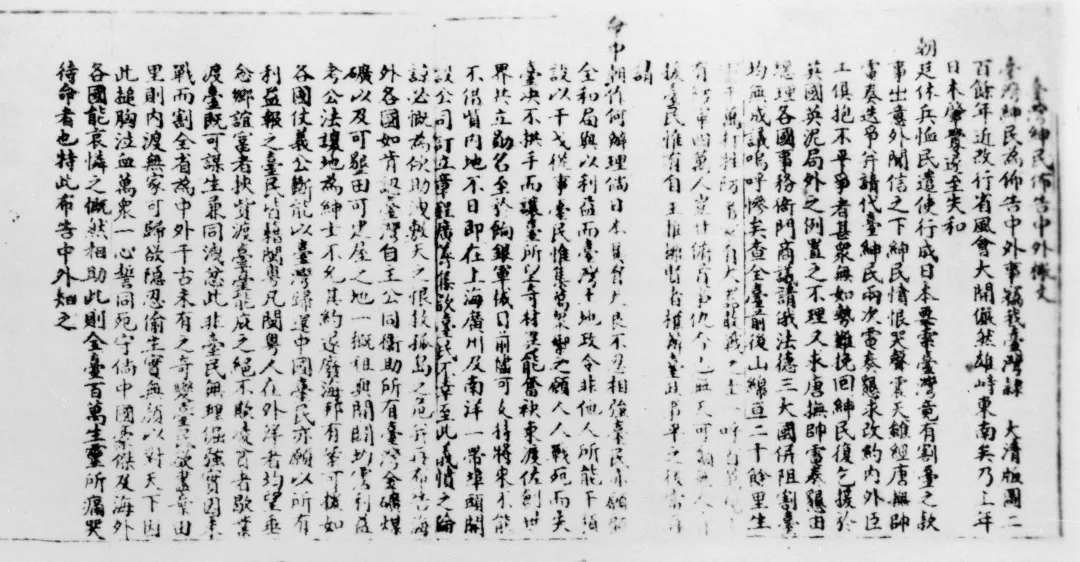 臺灣紳民佈告中外檄文
臺灣紳民為佈告中外事竊我臺灣隸 大清版圖二
百餘年近改行省風會大開儼然雄峙東南矣乃上年
日本肇釁遂至失和
朝廷休兵恤民遣使行成日本要索臺灣竟有割臺之款
事出意外聞信之下紳民憤恨哭聲震天雖經唐撫帥
電奏迭爭并請代臺紳民兩次電奏懇求改約內外臣
工俱抱不平爭者甚眾無如勢難挽回紳民復乞援於
英國英泥局外之例置之不理又求唐撫帥電奏懇由
總理各國事務衙門商議請俄法德三大國併阻割臺
均無成議嗚呼慘矣查全臺前後山綿亘二千餘里生
萬打牲防有火器敢戰之士一呼百
有防軍四萬人豈甘俯首事仇今已無天可籲無人肯
援臺民惟有自主推擁賢者權攝臺政事平之後當再
請
命中朝作何辦理倘日本具有天良不忍相強臺民亦願顧
全和局與以利益而臺灣土地政令非他人所能干預
設以干戈從事臺民惟集萬眾禦之願人人戰死而失
臺決不拱手而讓臺所望奇材異能奮袂東渡佐創世
界共立勛名至於餉銀軍械目前儘可支持將來不能
不借貸內地不日即在上海廣州及南洋一帶埠頭開
設公司訂立章程廣籌集款臺民不幸至此義憤之倫
諒必慨為佽助洩敷天之恨救孤島之危并再布告海
外各國如肯認臺灣自主公同衛助所有臺灣金礦煤
礦以及可墾田可建屋之地一概租與開闢均沾利益
考公法讓地為紳士不允其約遂廢海邦有案可援如
各國仗義公斷能以臺灣歸還中國臺民亦願以所有
利益報之臺民皆籍閩粵凡閩粵人在外洋者均望垂
念鄉誼富者挾貲渡臺臺能庇之絕不欺凌貧者歇業
渡臺既可謀生兼同洩忿此非臺民無理倔強實因未
戰而割全省為中外千古未有之奇變臺民欲盡棄田
里則內渡無家可歸欲隱忍偷生實無顏以對天下因
此搥胸泣血萬眾一心誓同死守倘中國豪傑及海外
各國能哀憐之慨然相助此則全臺百萬生靈所痛哭
待命者也特此布告中外知之